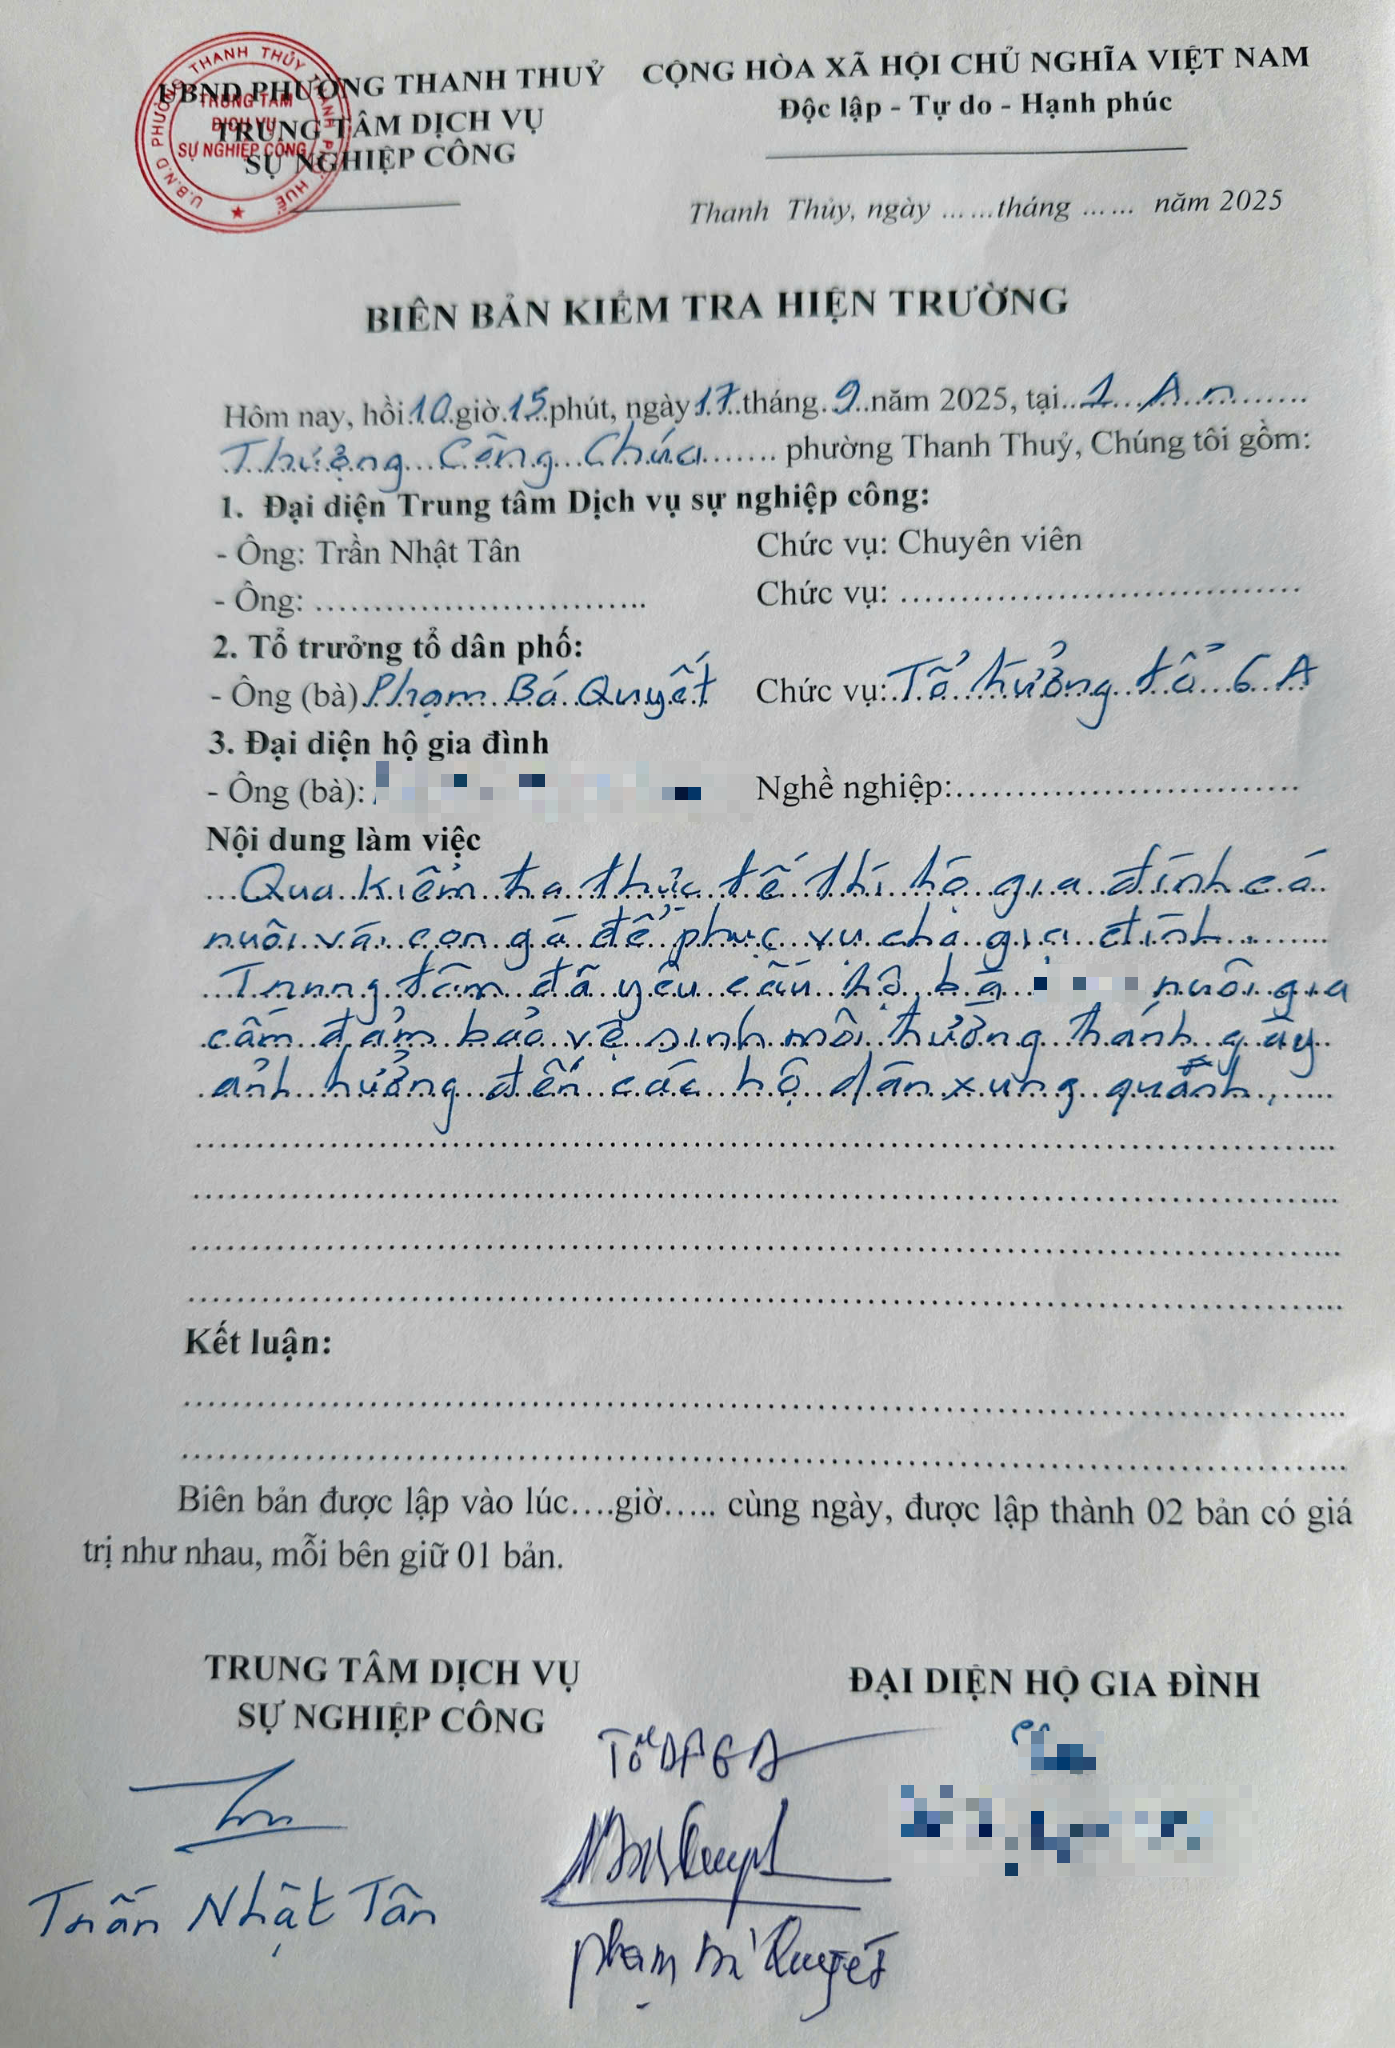 UBND PHƯỜNG THANH THUỶ CỘNG HÒA XÃ HỘI CHỦ NGHĨA VIỆT NAM
TRUNG TÂM DỊCH VỤ Độc lập - Tự do - Hạnh phúc
SỰ NGHIỆP CÔNG
U.B.N.D PHƯỜNG THANH THỦY THÀNH PHỐ HUẾ
TRUNG TÂM
DỊCH VỤ
SỰ NGHIỆP CÔNG
Thanh Thủy, ngày ......tháng ...... năm 2025
BIÊN BẢN KIỂM TRA HIỆN TRƯỜNG
Hôm nay, hồi 10 giờ 15 phút, ngày 17 tháng 9 năm 2025, tại 1 An
Thường Công Chúa phường Thanh Thuỷ, Chúng tôi gồm:
1. Đại diện Trung tâm Dịch vụ sự nghiệp công:
- Ông: Trần Nhật Tân Chức vụ: Chuyên viên
- Ông: Chức vụ:
2. Tổ trưởng tổ dân phố:
- Ông (bà) Phạm Bá Quyết Chức vụ: Tổ trưởng tổ 6A
3. Đại diện hộ gia đình
- Ông (bà): Nghề nghiệp:
Nội dung làm việc
Qua kiểm tra thực tế thì hộ gia đình có
nuôi vài con gà để phục vụ cho gia đình
Trung tâm đã yêu cầu hộ bà nuôi gia
cầm đảm bảo vệ sinh môi trường tránh gây
ảnh hưởng đến các hộ dân xung quanh.
Kết luận:
Biên bản được lập vào lúc....giờ..... cùng ngày, được lập thành 02 bản có giá
trị như nhau, mỗi bên giữ 01 bản.
TRUNG TÂM DỊCH VỤ ĐẠI DIỆN HỘ GIA ĐÌNH
SỰ NGHIỆP CÔNG
Trần Nhật Tân
Phạm Bá Quyết